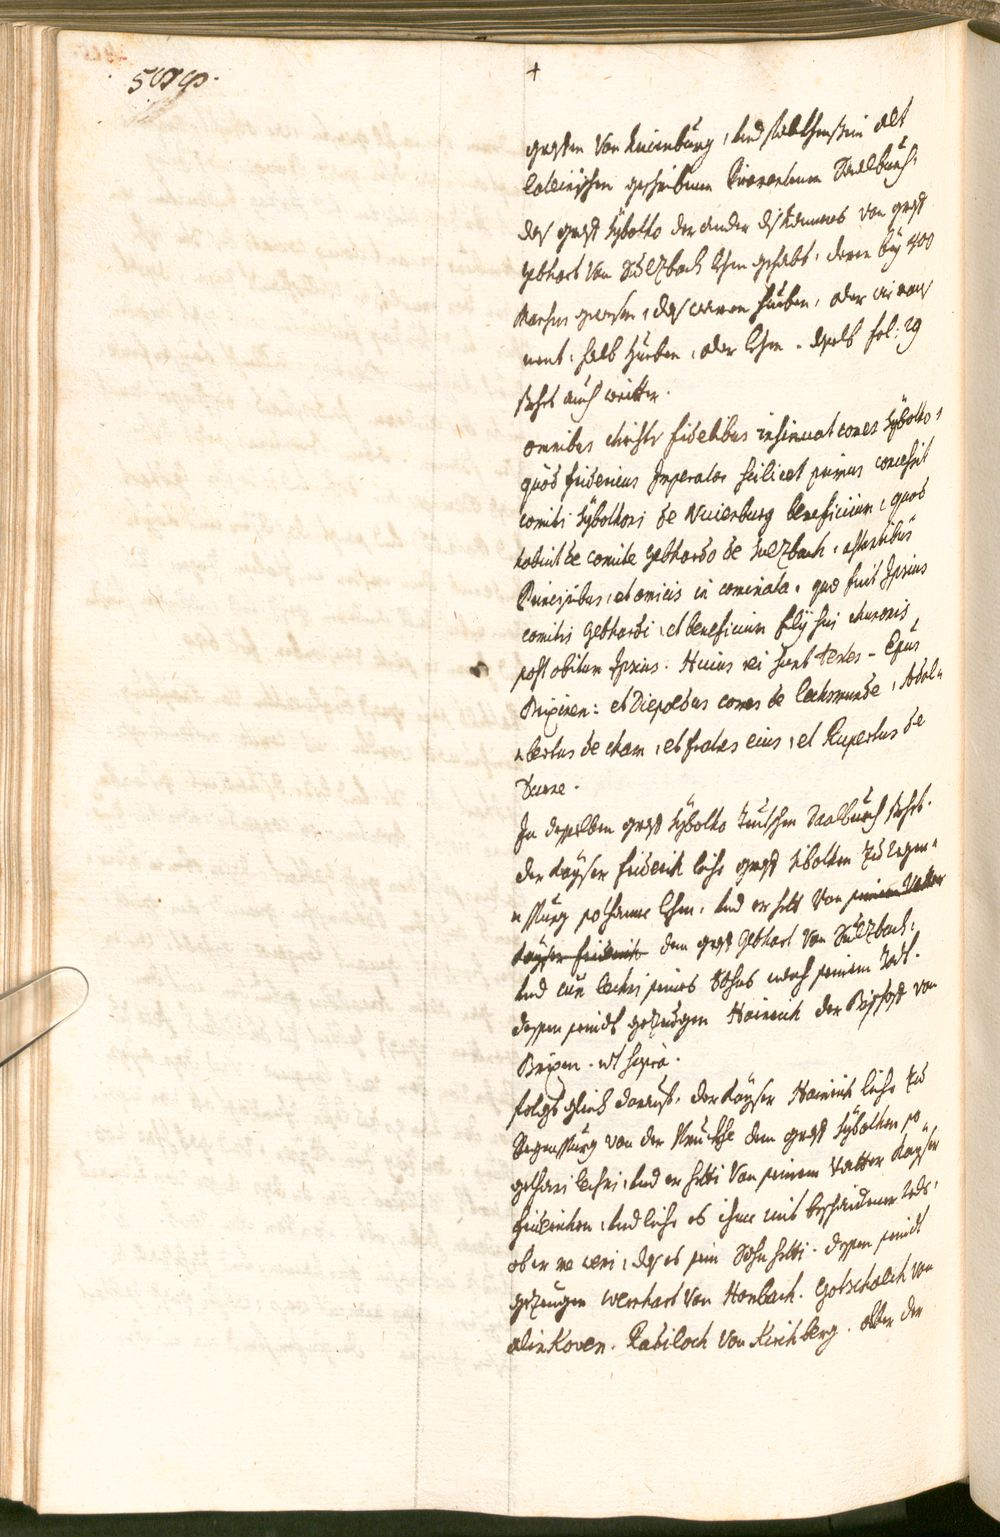 +
grafen von Neienburg, und
lateinischen geschribnen Saalbuch
das graf Sybotto der ander von graf
Gebhart von Sulzbach lehen gehabt, deren bey 400
nent, halb huben, oder lehen. fol: 29
steht auch weitter.
omnibus christi fidelibus insinuat comes Sybotto,
quod fridericus Imperator scilicet primus concessit
comiti Sybottoni de Nuienburg beneficium, quod
habuit de comite Gebhardo de Sulzbach, astantibus
Principibus, et amicis in cominata, quod fuit Ipsius
comitis Gebhardi, et beneficium filij sui
post obitum Ipsius. Huius rei sunt testes - Epũs
Brixinen: et Diepoldus comes de lechsmunde, Adel„
„bertus de cham, et frater eius, et Rupertus de
Durne.
In desselben graf Sybotto teutschen Saalbuch steht.
der kayser friderich lihe graf Sibotten zu regen„
„spurg lehen, und er hett von seinem Vatter
kayser friderich dem graf Gebhart von Sulzbach,
und lechen seines Sohns nach seinem Todt.
dessen seindt gezeugen Hainrich der Bischoff von
Brixen. ut supra.
folgt gleich darauf. der kayser Hainrich lihe zu
Regenspurg von der dem graf Sybotten so„
lechni, und er hetti von seinem Vatter kayser
fridrichen, und lihe es ihme mit bescheidener
ob er weri, das es sein Sohn hetti. dessen seindt
gezeugen Wernhart von Honbach. Gotschalch von
Alinkoven. Rabiloch von Kirchberg. aber der